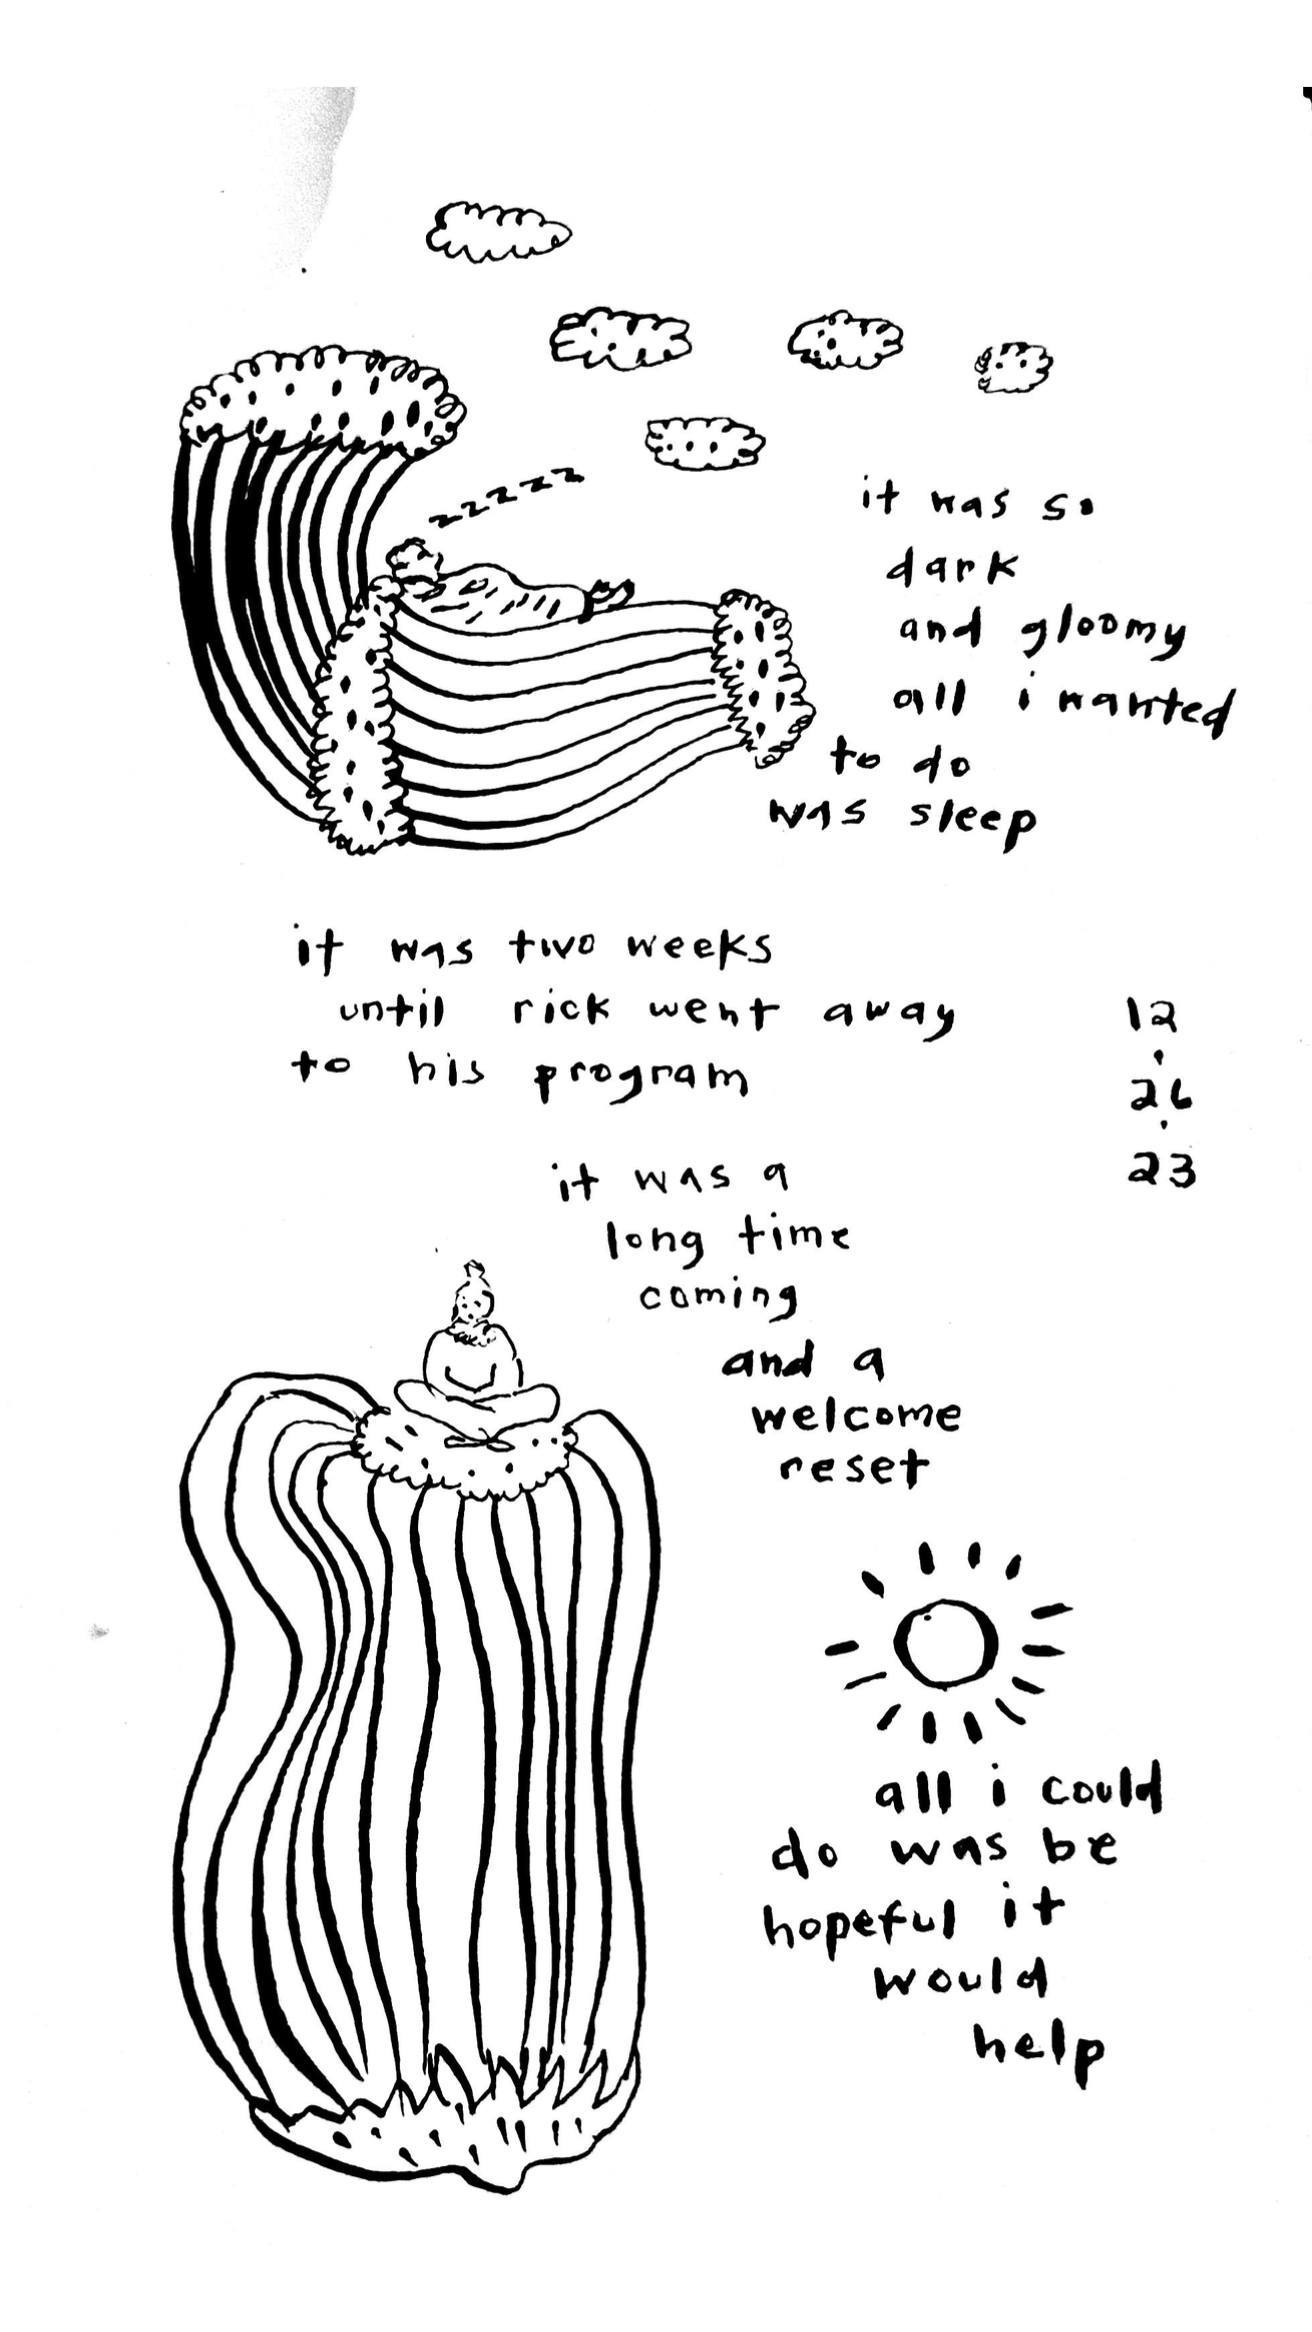 zzzzz
it was so
dark
and gloomy
all i wanted
to do
was sleep
it was two weeks
until rick went away
to his program
12
.
26
.
23
it was a
long time
coming
and a
welcome
reset
all i could
do was be
hopeful it
would
help